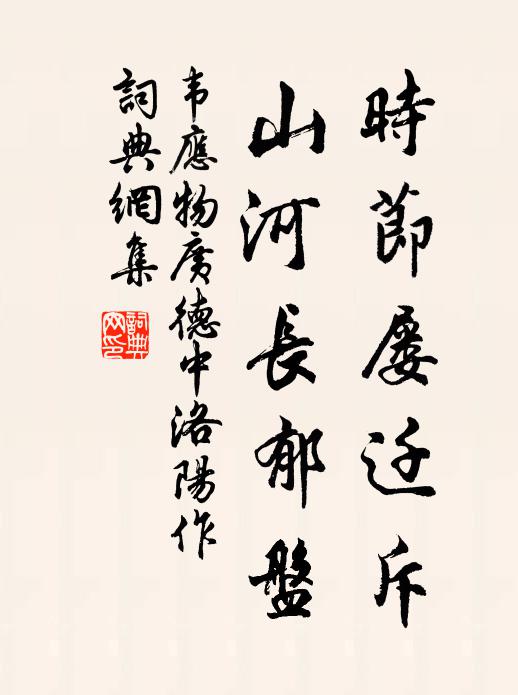 時節屢迁斥
山河長郁盤
韦應物廣德中洛陽作
詞典網集
詞典
网印